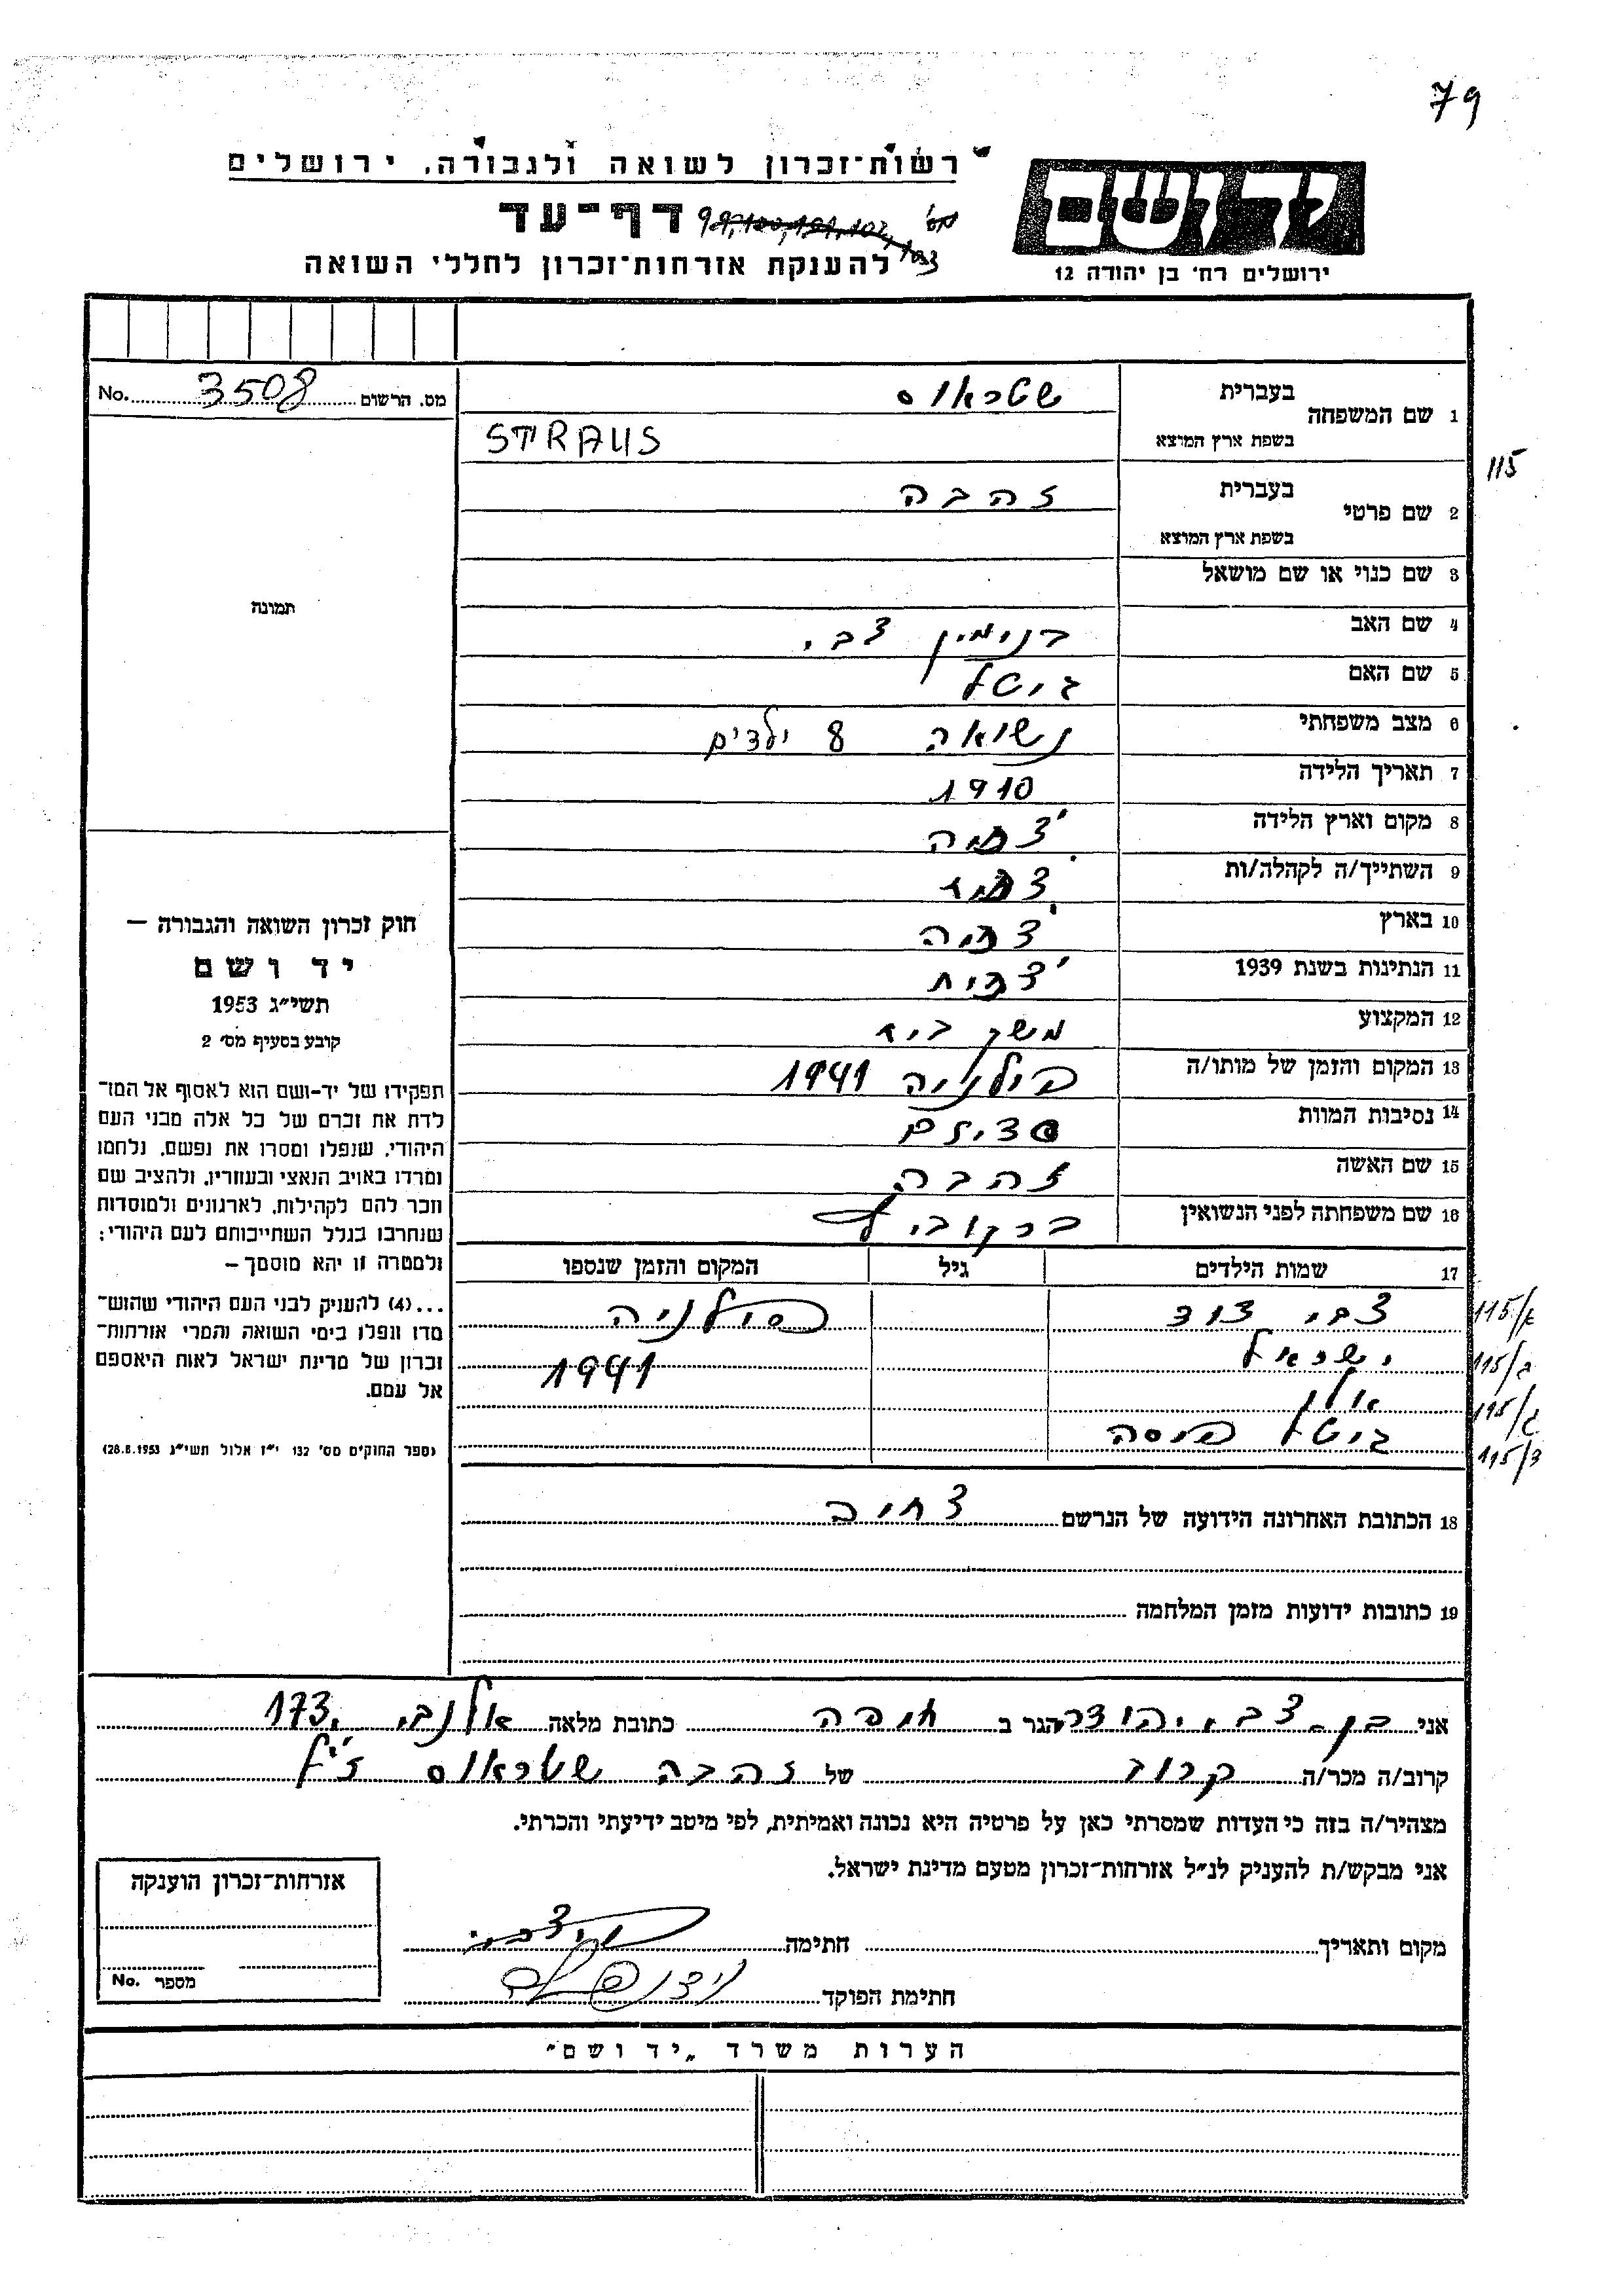 79
רשות־זכרון לשואה ולגבורה, ירושלים
יד ושם
דף־עד
מס' 99,100,101,102,103
להענקת אזרחות־זכרון לחללי השואה
ירושלים רח' בן יהודה 12
מס. הרשום 3508 No.
1 שם המשפחה בעברית שטראוס
בשפת ארץ המוצא STRAUS
115
2 שם פרטי בעברית זהבה
בשפת ארץ המוצא
3 שם כנוי או שם מושאל
תמונה
4 שם האב בנימין צבי
5 שם האם גיטל
6 מצב משפחתי נשואה 8 ילדים
7 תאריך הלידה 1910
8 מקום וארץ הלידה צ'כיה
9 השתייך/ה לקהלה/ות
10 בארץ צ'כיה
11 הנתינות בשנת 1939 צ'כית
12 המקצוע משק בית
13 המקום והזמן של מותו/ה פולניה 1941
14 נסיבות המוות
15 שם האשה זהבה
16 שם משפחתה לפני הנשואין ברקוביץ
חוק זכרון השואה והגבורה —
יד ושם
תשי"ג 1953
קובע בסעיף מס' 2
תפקידו של יד-ושם הוא לאסוף אל המו־
לדת את זכרם של כל אלה מבני העם
היהודי, שנפלו ומסרו את נפשם, נלחמו
ומרדו באויב הנאצי ובעוזריו, ולהציב שם
וזכר להם לקהילות, לארגונים ולמוסדות
שנחרבו בגלל השתייכותם לעם היהודי;
ולמטרה זו יהא מוסמך —
...(4) להעניק לבני העם היהודי שהוש־
מדו ונפלו בימי השואה והמרי אזרחות־
זכרון של מדינת ישראל לאות היאספם
אל עמם.
(ספר החוקים מס' 132 י"ז אלול תשי"ג 28.8.1953)
17 שמות הילדים גיל המקום והזמן שנספו
צבי דוד פולניה 115/א
ישראל 1941 115/ב
115/ג
גיטל 115/ד
18 הכתובת האחרונה הידועה של הנרשם
19 כתובות ידועות מזמן המלחמה
אני בן-צבי יהודה הגר ב חיפה כתובת מלאה אלנבי 173
קרוב/ה מכר/ה קרוב של זהבה שטראוס ז"ל
מצהיר/ה בזה כי העדות שמסרתי כאן על פרטיה היא נכונה ואמיתית, לפי מיטב ידיעתי והכרתי.
אני מבקש/ת להעניק לנ"ל אזרחות־זכרון מטעם מדינת ישראל.
אזרחות־זכרון הוענקה
מספר No.
מקום ותאריך חתימה
חתימת הפוקד
הערות משרד "יד ושם"